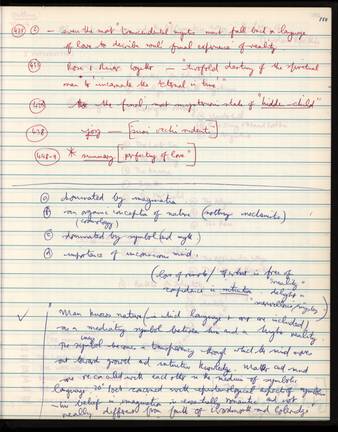 (431) (c) — even the most "transcendental" mystic must fall back on language
of love to describe soul's final experience of reality
Rose & River together — "twofold destiny of the spiritual
man" to "incarnate the Eternal in time"
the final, most mysterious state of "hidden-child"
438 joy — ["suoi occhi ridenti"]
448-9 * summary ["perfecting of love"]
(a) dominated by imagination
(b) an organic conception of nature (nothing mechanistic)
(cosmology)
(c) dominated by symbol (and myth)
(d) importance of unconscious mind.
what is free of
"reality"
confidence in intuition
✓ "Man knows nature (in which language & art are included)
as a mediating symbol between him and a higher reality
The symbol becomes a transparency through which the mind moves
out toward growth and intuitive knowledge. Matter and mind
are reconciled with each other in the medium of symbolic
language
his belief in imagination is essentially romantic and not
really different from faith of Wordsworth and Coleridge